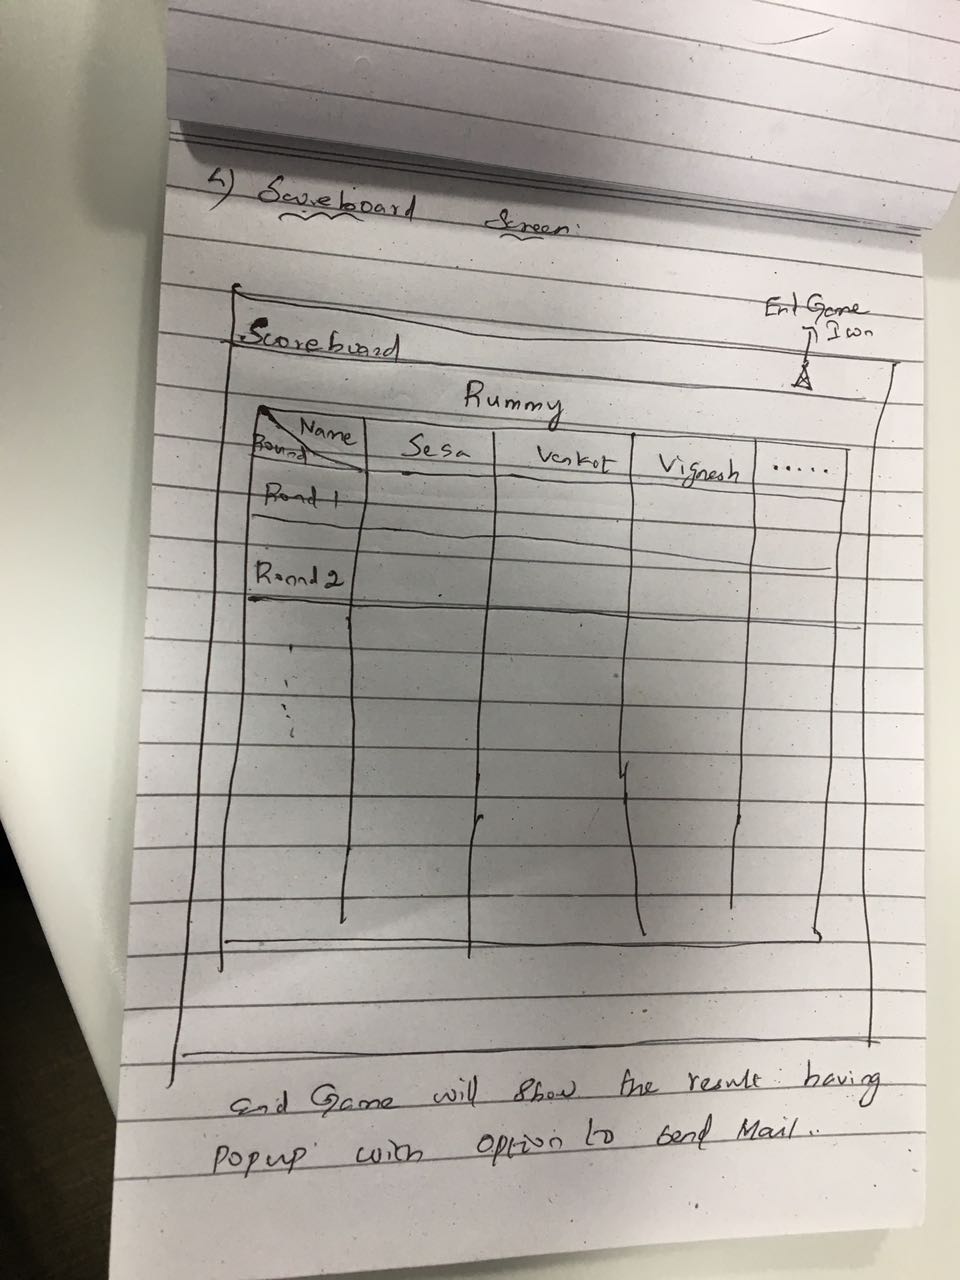 4) Scoreboard Screen:
End Game
Icon
Scoreboard
Rummy
Name
Round
Sesa
Venkat
Vignesh
.....
Round 1
Round 2
End Game will show the result having
popup with option to send Mail..